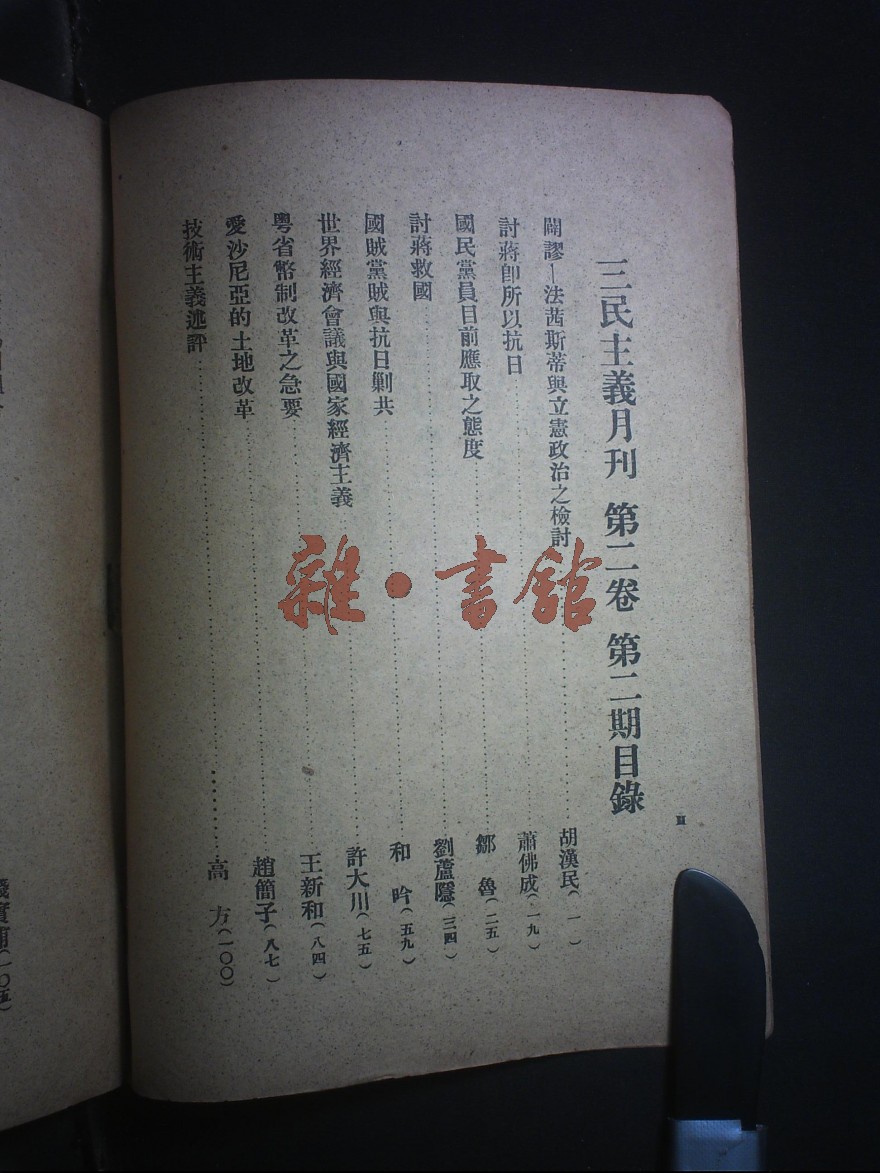 三民主義月刊 第二卷 第二期目錄
闢謬—法茜斯蒂與立憲政治之檢討……胡漢民(一)
討蔣卽所以抗日……蕭佛成(一九)
國民黨員目前應取之態度……鄒 魯(二五)
討蔣救國……劉蘆隱(三四)
國賊黨賊與抗日剿共……和 吟(五九)
世界經濟會議與國家經濟主義……許大川(七五)
粵省幣制改革之急要……王新和(八四)
愛沙尼亞的土地改革……趙簡子(八七)
技術主義述評……高 方(一〇〇)
雜·書館